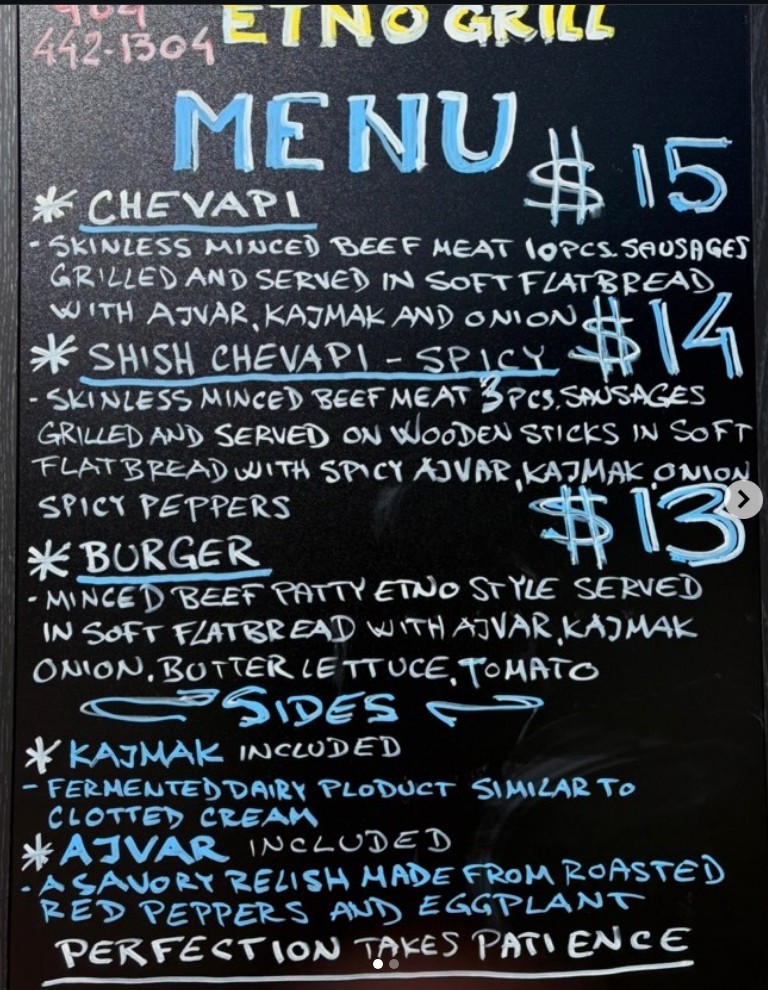 904
442-1304 ETNO GRILL
MENU
* CHEVAPI $15
- SKINLESS MINCED BEEF MEAT 10PCS. SAUSAGES
GRILLED AND SERVED IN SOFT FLATBREAD
WITH AJVAR, KAJMAK AND ONION
* SHISH CHEVAPI - SPICY $14
- SKINLESS MINCED BEEF MEAT 3PCS. SAUSAGES
GRILLED AND SERVED ON WOODEN STICKS IN SOFT
FLATBREAD WITH SPICY AJVAR, KAJMAK, ONION
SPICY PEPPERS
* BURGER $13
- MINCED BEEF PATTY ETNO STYLE SERVED
IN SOFT FLATBREAD WITH AJVAR, KAJMAK
ONION, BUTTER LETTUCE, TOMATO
SIDES
* KAJMAK INCLUDED
- FERMENTED DAIRY PLODUCT SIMILAR TO
CLOTTED CREAM
* AJVAR INCLUDED
- A SAVORY RELISH MADE FROM ROASTED
RED PEPPERS AND EGGPLANT
PERFECTION TAKES PATIENCE